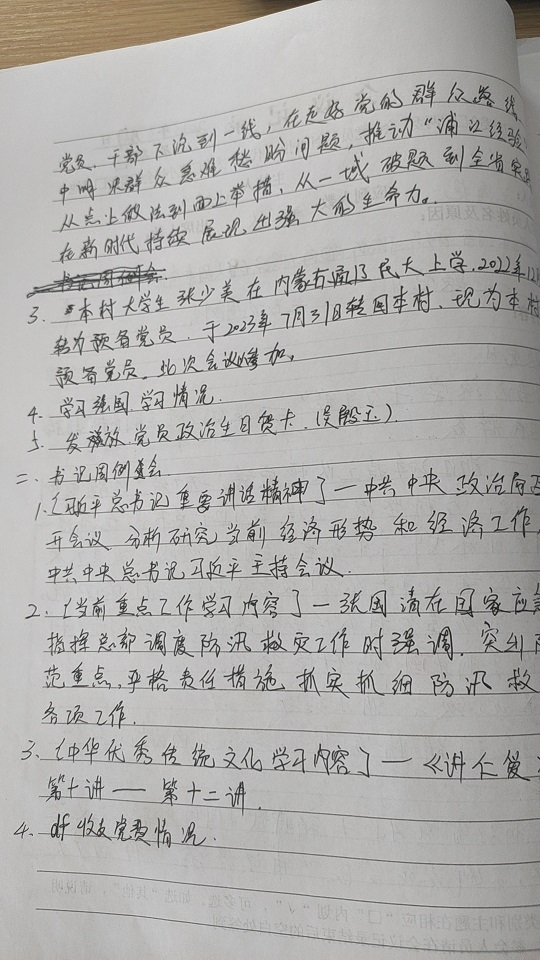 党员、干部下沉到一线,在走好党的群众路线
中解决群众急难愁盼问题,推动"浦江经验"
从点上做法到面上举措、从一域破题到全省实践
在新时代持续展现出强大的生命力。
书记周例会
3. 本村大学生张少美在内蒙古 民大上学,2022年12月
转为预备党员,于2023年7月31日转回本村,现为本村
预备党员,此次会议参加。
4. 学习强国学习情况.
5. 发放党员政治生日贺卡.(吴殿玉)
二、书记周例会
1.[习近平总书记重要讲话精神]—中共中央政治局召
开会议 分析研究当前经济形势和经济工作,
中共中央总书记习近平主持会议.
2.[当前重点工作学习内容]—张国清在国家应急
指挥总部调度防汛救灾工作时强调.突出防
范重点,严格责任措施,抓实抓细防汛救
各项工作.
3.[中华优秀传统文化学习内容]—《讲仁爱
第十讲——第十二讲.
4. df收支党费情况.
类别和主题在相应"□"内划"√",可多选,如选"其他",请说明